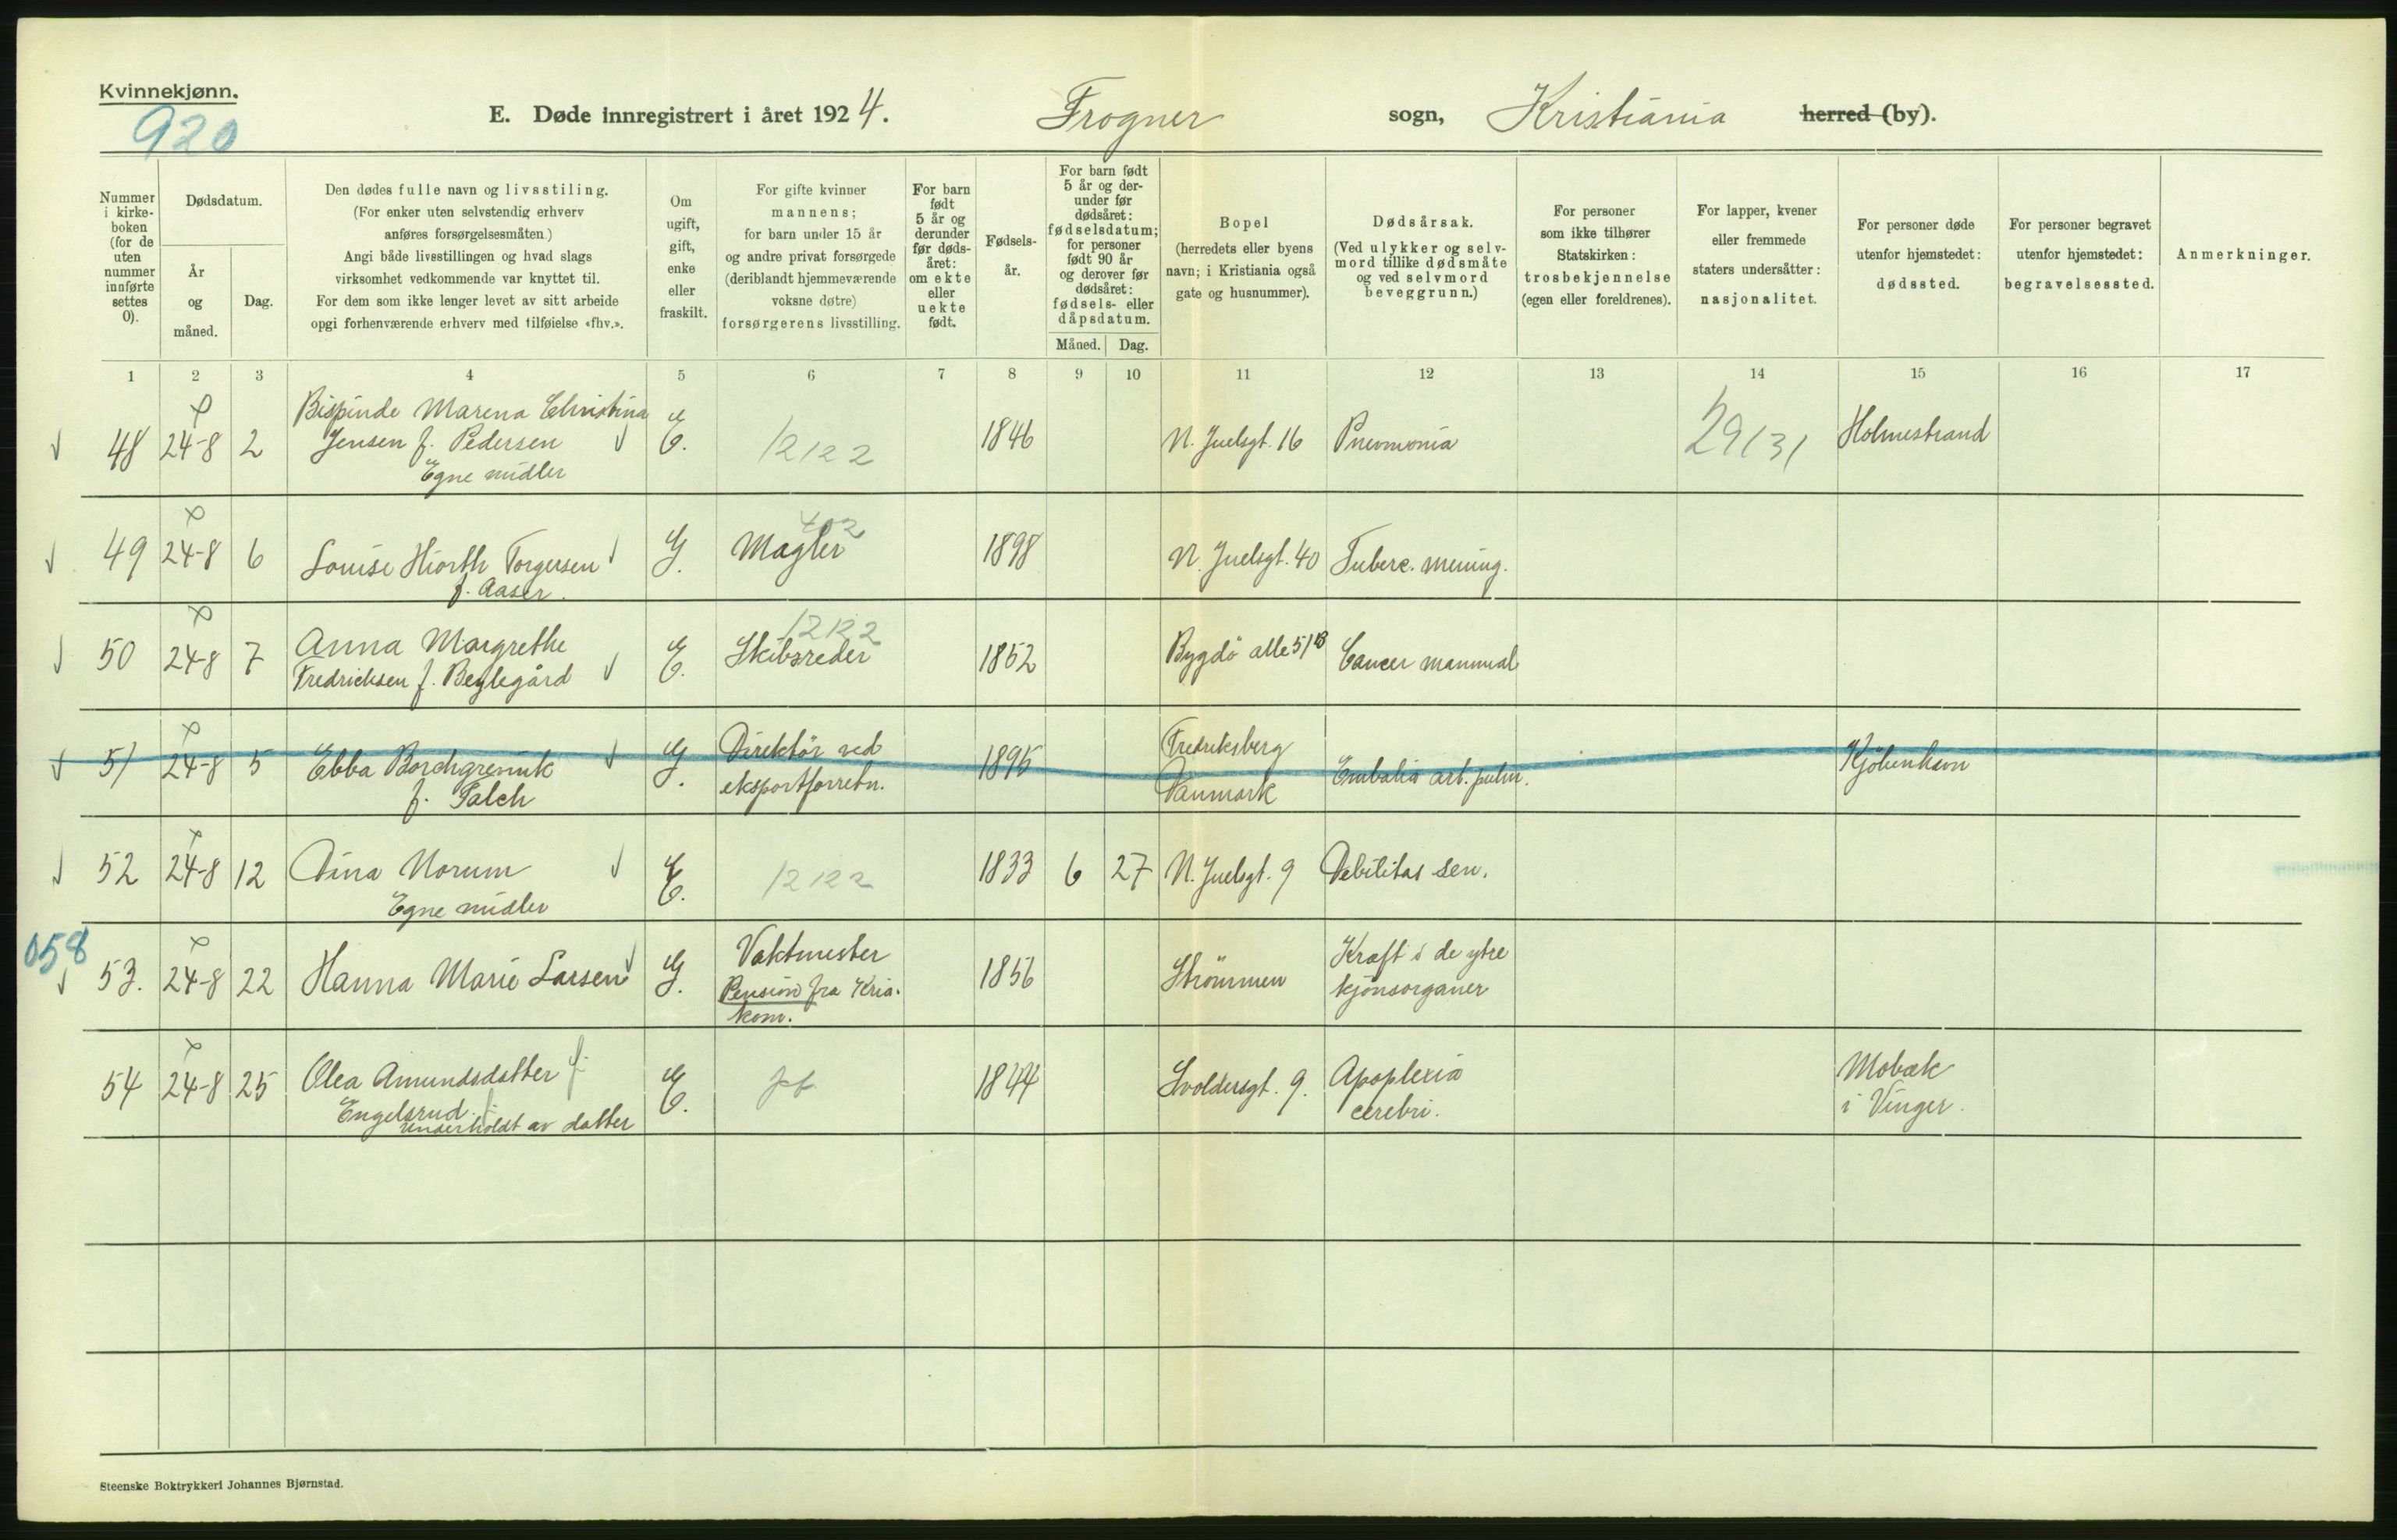 Kvinnekjønn.
920
E. Døde innregistrert i året 1924. Frogner sogn, Kristiania herred (by).
Nummer i kirke-boken (for de uten nummer innførte settes 0).
Dødsdatum.
År og måned.
Dag.
Den dødes fulle navn og livsstiling.
(For enker uten selvstendig erhverv
anføres forsørgelsesmåten.)
Angi både livsstillingen og hvad slags
virksomhet vedkommende var knyttet til.
For dem som ikke lenger levet av sitt arbeide
opgi forhenværende erhverv med tilføielse «fhv.».
Om ugift, gift, enke eller fraskilt.
For gifte kvinner
mannens;
for barn under 15 år
og andre privat forsørgede
(deriblandt hjemmeværende
voksne døtre)
forsørgerens livsstilling.
For barn født 5 år og derunder før døds-året: om ekte eller uekte født.
Fødsels-år.
For barn født
5 år og der-
under før
dødsåret:
fødselsdatum;
for personer
født 90 år
og derover før
dødsåret:
fødsels- eller
dåpsdatum.
Måned. Dag.
Bopel
(herredets eller byens
navn; i Kristiania også
gate og husnummer).
Dødsårsak.
(Ved ulykker og selv-
mord tillike dødsmåte
og ved selvmord
beveggrunn.)
For personer
som ikke tilhører
Statskirken:
trosbekjennelse
(egen eller foreldrenes).
For lapper, kvener
eller fremmede
staters undersåtter:
nasjonalitet.
For personer døde
utenfor hjemstedet:
dødssted.
For personer begravet
utenfor hjemstedet:
begravelsessted.
Anmerkninger.
1 2 3 4 5 6 7 8 9 10 11 12 13 14 15 16 17
48 24-8 2 Marena Christina
Jensen f. Pedersen
Egne midler
E. 12122 1846 N. Juelsgt. 16 Pneumonia Holmestrand
49 24-8 6 Louise Hiorth Torgersen
f. Aaser.
G. Magler 1898 N. Juelsgt. 40 Tuberc. mening.
50 24-8 7 Anna Margrethe
Fredricksen f. Beylegård
E. 12122
Skibsreder 1852 Bygdö alle 51B Cancer mammal
51 24-8 5 Ebba Borchgrevink
f. Falch
G. Direktör ved
eksportforretn.
1895 Fredriksberg
Danmark
Embolia art. pulm. Kjöbenhavn
52 24-8 12 Dina Norum
Egne midler
E. 12122 1833 6 27 N. Juelsgt. 9 Debilitas sen.
058
53. 24-8 22 Hanna Marie Larsen
G. Vaktmester
Pension fra Kria.
kom.
1856 Strömmen Kræft i de ytre
kjönsorganer
54 24-8 25 Olea Amundsdatter
Engelsrud.
underholdt av datter
E. 1844 Svoldersgt. 9. Apoplexia
cerebri.
Mobæk
i Vinger.
Steenske Boktrykkeri Johannes Bjørnstad.